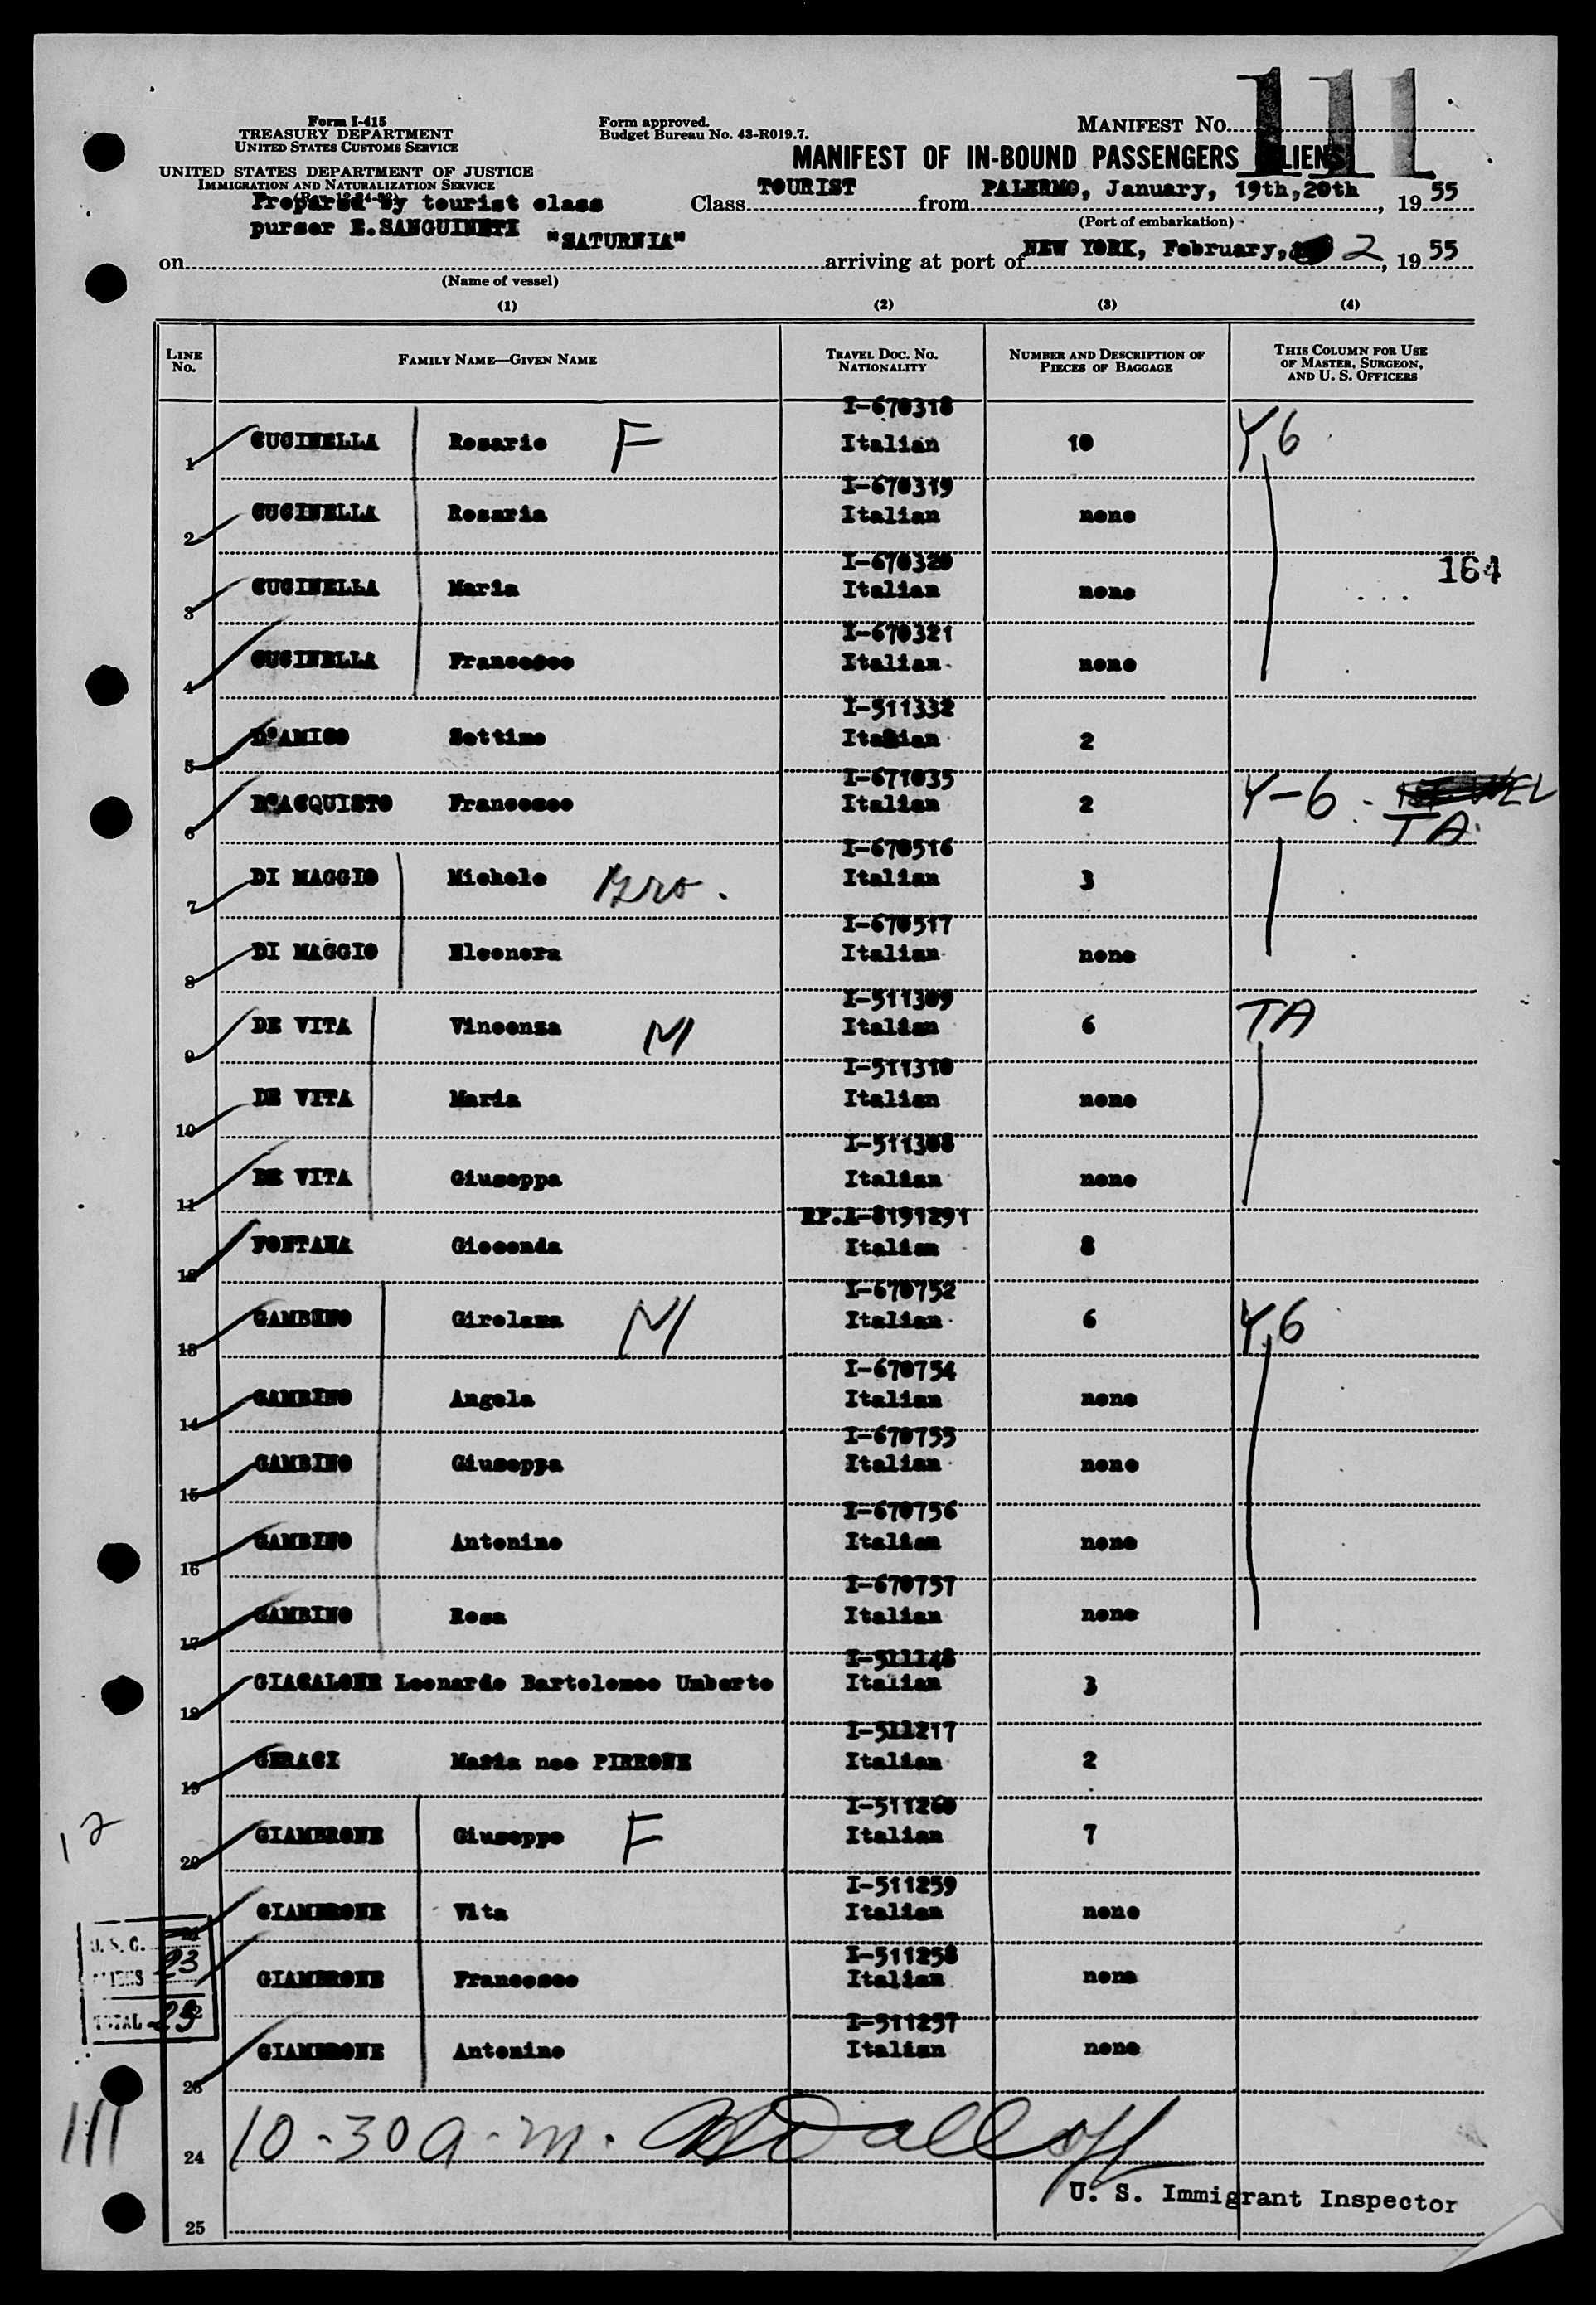 111
Form I-415
TREASURY DEPARTMENT
UNITED STATES CUSTOMS SERVICE
Form approved.
Budget Bureau No. 43-R019.7.
MANIFEST No.
MANIFEST OF IN-BOUND PASSENGERS (ALIENS)
UNITED STATES DEPARTMENT OF JUSTICE
IMMIGRATION AND NATURALIZATION SERVICE
Prepared by tourist class
purser E.SANGUINETI
Class TOURIST from PALERMO, January, 19th,20th, 1955
(Port of embarkation)
on "SATURNIA" arriving at port of NEW YORK, February, 2, 1955
(Name of vessel)
(1) (2) (3) (4)
LINE No. FAMILY NAME—GIVEN NAME TRAVEL DOC. No. NATIONALITY NUMBER AND DESCRIPTION OF PIECES OF BAGGAGE THIS COLUMN FOR USE OF MASTER, SURGEON, AND U. S. OFFICERS
I-670318
1 CUCINELLA Rosario F Italian 10 Y,6
I-670319
2 CUCINELLA Rosaria Italian none
I-670320
164
3 CUCINELLA Maria Italian none
I-670321
4 CUCINELLA Francesco Italian none
I-511332
5 D'AMICO Settimo Italian 2
I-671035
6 D'ACQUISTO Francesco Italian 2 Y-6 - TA
I-670516
7 DI MAGGIO Michele Bro. Italian 3
I-670517
8 DI MAGGIO Eleonora Italian none
I-511309
9 DE VITA Vincenza M Italian 6 TA
I-511310
10 DE VITA Maria Italian none
I-511308
11 DE VITA Giuseppa Italian none
RP.A-8191291
12 FONTANA Gioconda Italian 8
I-670752
13 GAMBINO Girolama M Italian 6 Y,6
I-670754
14 GAMBINO Angela Italian none
I-670755
15 GAMBINO Giuseppa Italian none
I-670756
16 GAMBINO Antonino Italian none
I-670757
17 GAMBINO Rosa Italian none
I-511148
18 GIACALONE Leonardo Bartolomeo Umberto Italian 3
I-511217
19 GERACI Maria nee PIRRONE Italian 2
I-511260
12
20 GIAMBRONE Giuseppe F Italian 7
I-511259
21 GIAMBRONE Vita Italian none
U.S.C.
ALIENS 23
I-511258
22 GIAMBRONE Francesco Italian none
TOTAL 23
I-511257
23 GIAMBRONE Antonino Italian none
111
24 10-30 a.m.
U. S. Immigrant Inspector
25